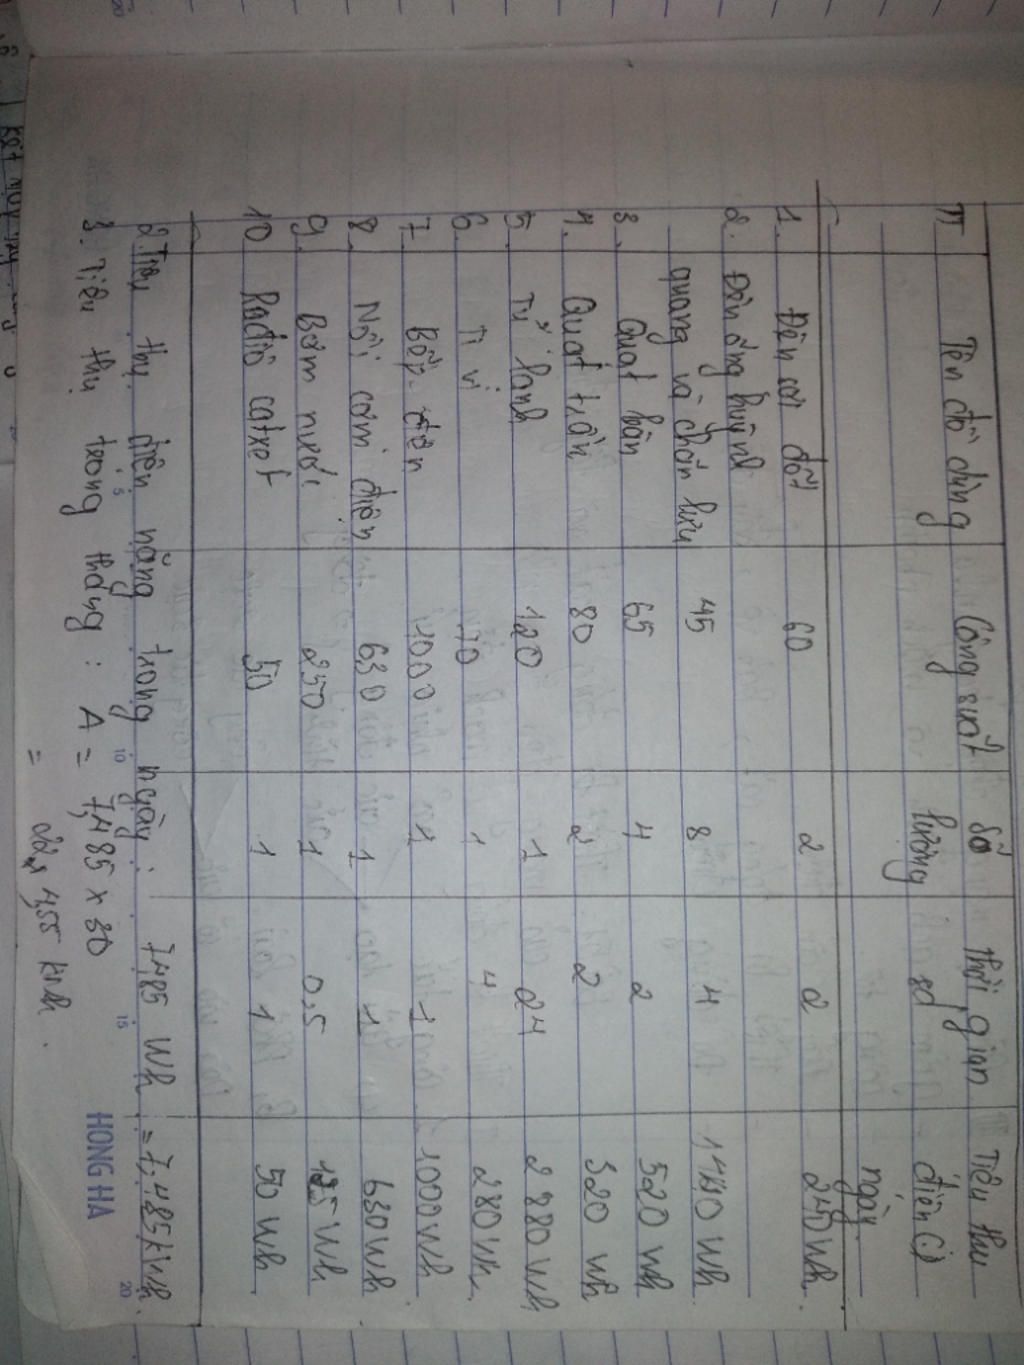 TT Tên đồ dùng Công suất Số lượng Thời gian sd Tiêu thụ điện ngày
1. Đèn sợi đốt 60 2 2 240 Wh.
2. Đèn ống huỳnh quang và chấn lưu 45 8 4 1440 Wh
3. Quạt bàn 65 4 2 520 Wh
4. Quạt trần 80 2 2 320 Wh
5. Tủ lạnh 120 1 24 2880 Wh
6. Ti vi 70 1 4 280 Wh.
7 Bếp điện 1000 1 1 1000 Wh
8. Nồi cơm điện 630 1 1 630 Wh
9. Bơm nước 250 1 0.5 125 Wh
10 Rađiô catxet 50 1 1 50 Wh
2. Tiêu thụ điện năng trong ngày: 7485 Wh = 7,485 kWh.
3. Tiêu thụ trong tháng: A = 7,485 x 30
=
HONG HA
5
10
15
20